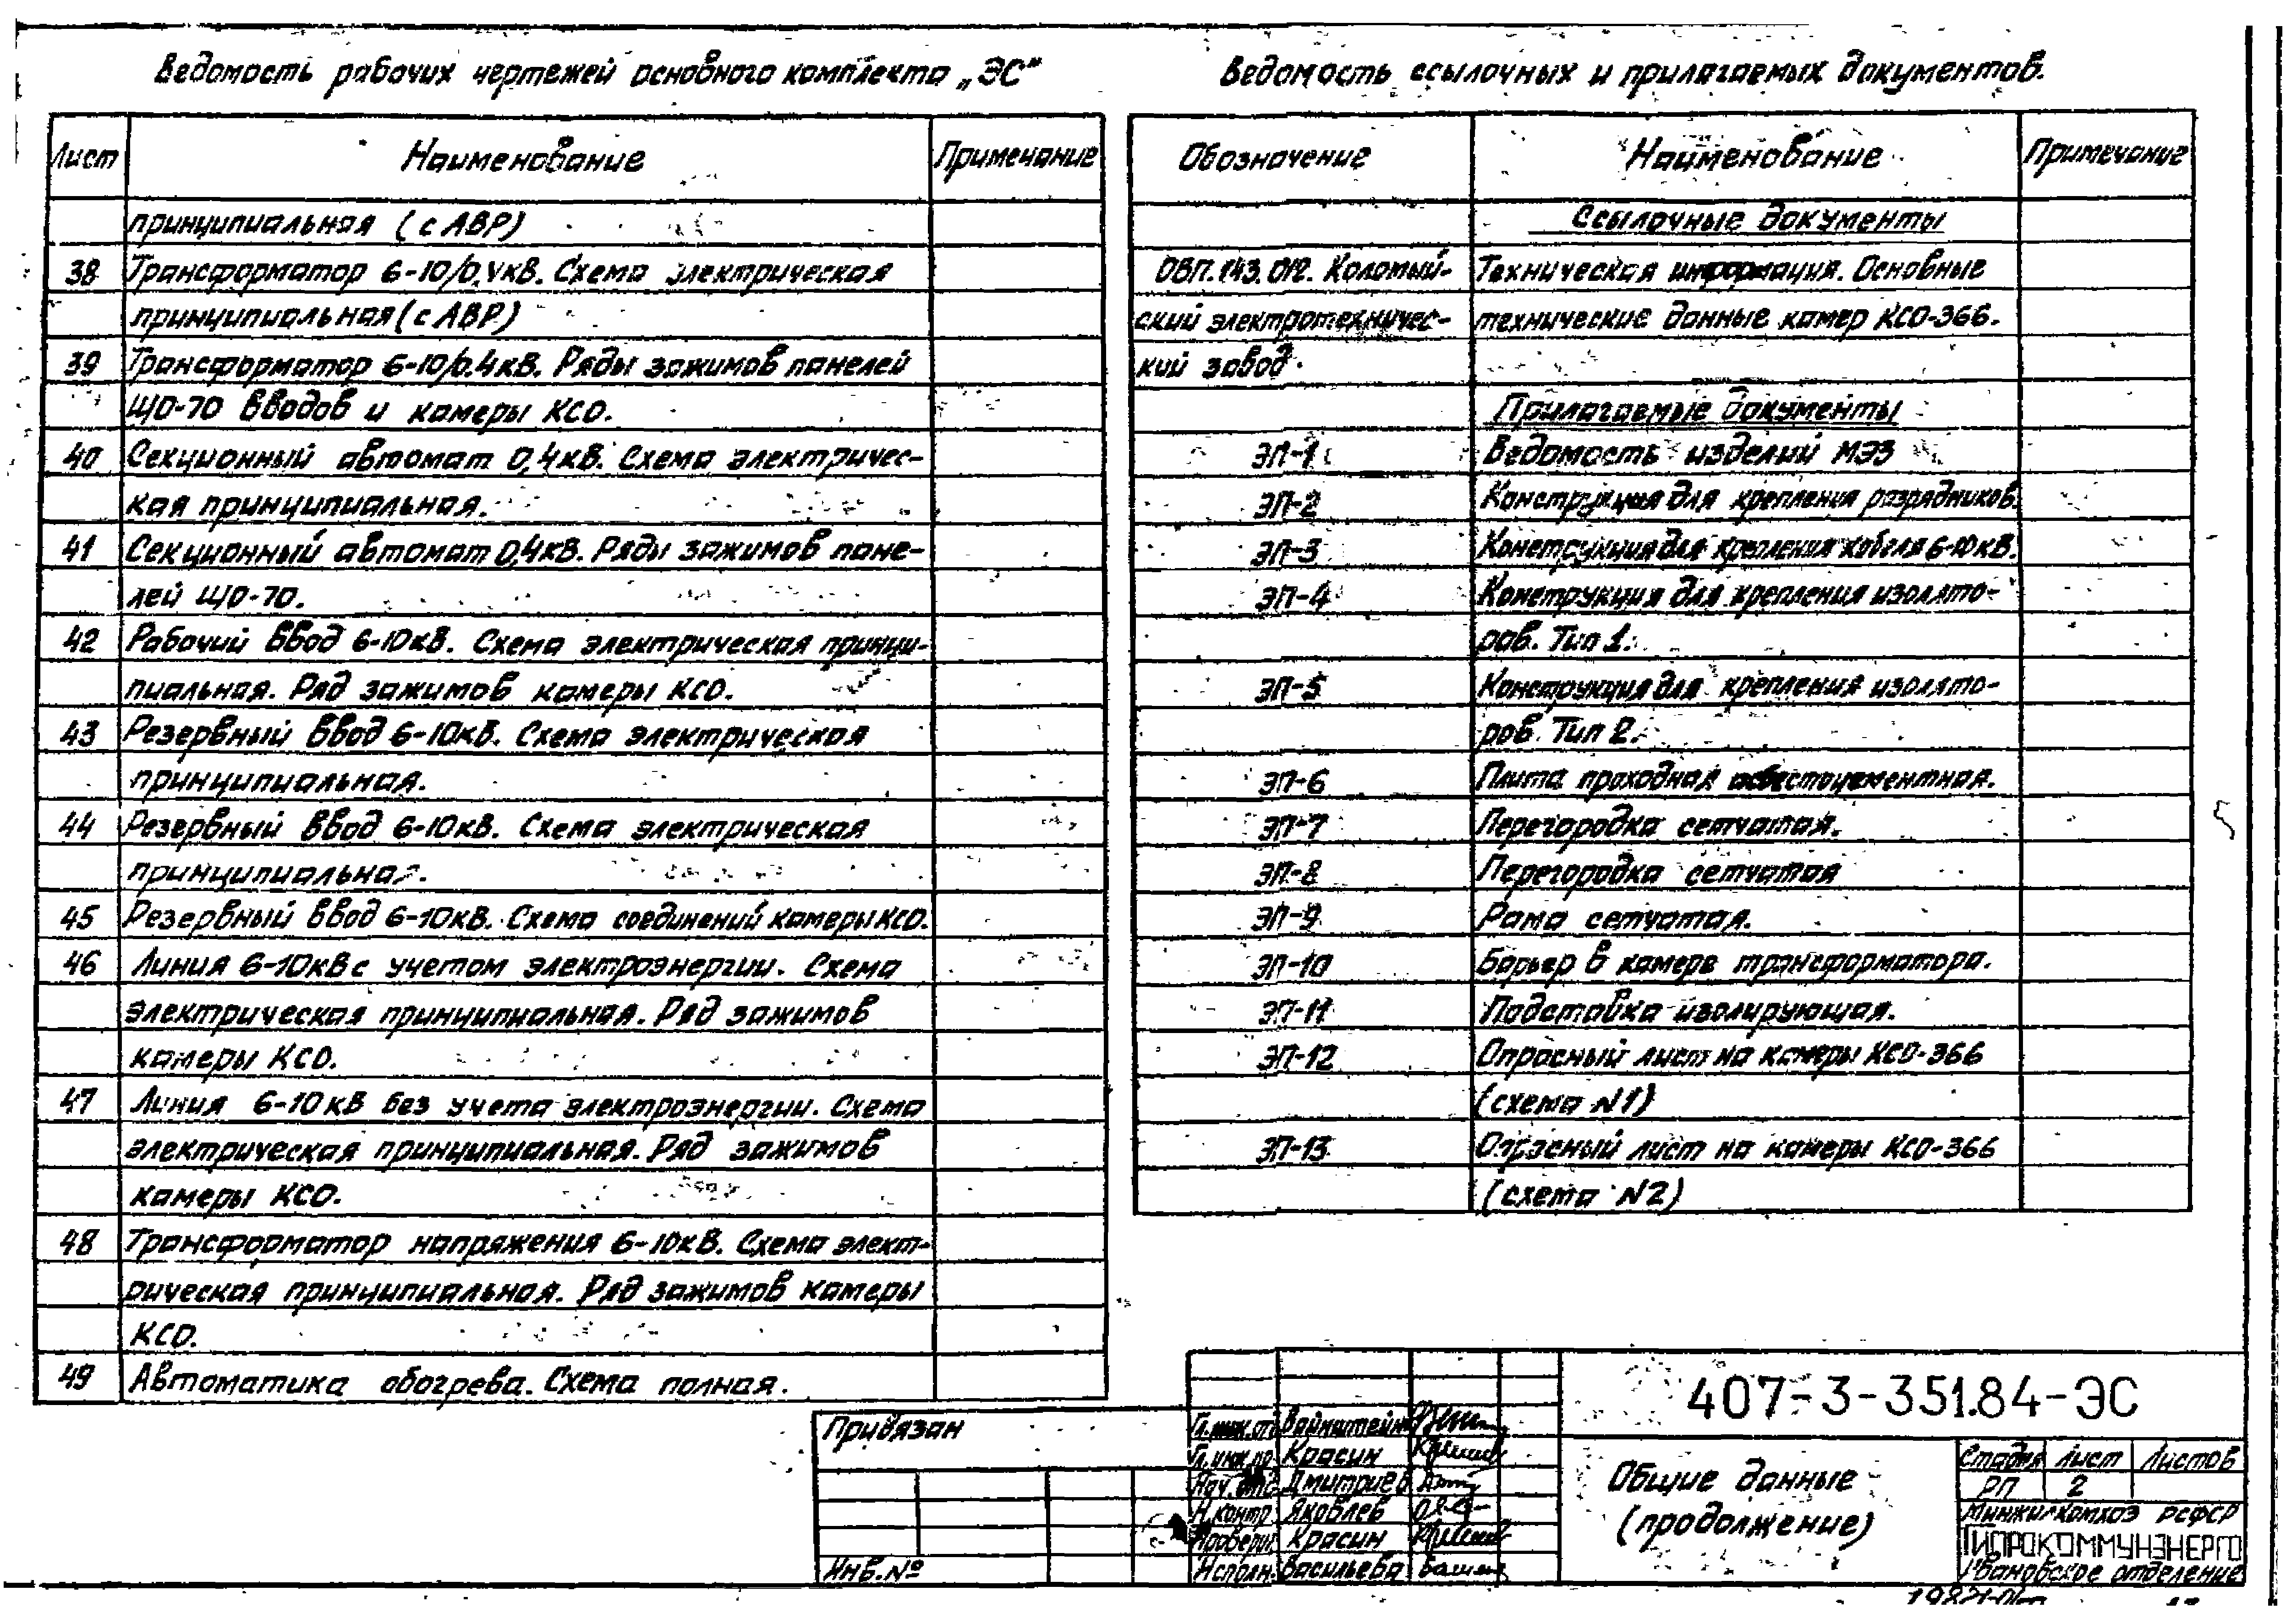 Ведомость рабочих чертежей основного комплекта „ЭС"
Лист Наименование Примечание
принципиальная (с АВР)
38 Трансформатор 6-10/0,4кВ. Схема электрическая
принципиальная (с АВР)
39 Трансформатор 6-10/0.4кВ. Ряды зажимов панелей
ЩО-70 вводов и камеры КСО.
40 Секционный автомат 0,4кВ. Схема электричес-
кая принципиальная.
41 Секционный автомат 0,4кВ. Ряды зажимов пане-
лей ЩО-70.
42 Рабочий ввод 6-10кВ. Схема электрическая принци-
пиальная. Ряд зажимов камеры КСО.
43 Резервный ввод 6-10кВ. Схема электрическая
принципиальная.
44 Резервный ввод 6-10кВ. Схема электрическая
принципиальная.
45 Резервный ввод 6-10кВ. Схема соединений камеры КСО.
46 Линия 6-10кВ с учетом электроэнергии. Схема
электрическая принципиальная. Ряд зажимов
камеры КСО.
47 Линия 6-10кВ без учета электроэнергии. Схема
электрическая принципиальная. Ряд зажимов
камеры КСО.
48 Трансформатор напряжения 6-10кВ. Схема элект-
рическая принципиальная. Ряд зажимов камеры
КСО.
49 Автоматика обогрева. Схема полная.
Ведомость ссылочных и прилагаемых документов.
Обозначение Наименование Примечание
Ссылочные документы
ОВП.143.012. Коломый- Техническая информация. Основные
ский электротехничес- технические данные камер КСО-366.
кий завод.
Прилагаемые документы
ЭП-1 Ведомость изделий МЭЗ
ЭП-2 Конструкция для крепления разрядников.
ЭП-3 Конструкция для крепления кабеля 6-10кВ.
ЭП-4 Конструкция для крепления изолято-
ров. Тип 1.
ЭП-5 Конструкция для крепления изолято-
ров. Тип 2.
ЭП-6 Плита проходная асбестоцементная.
ЭП-7 Перегородка сетчатая.
ЭП-8 Перегородка сетчатая
ЭП-9 Рама сетчатая.
ЭП-10 Барьер в камере трансформатора.
ЭП-11 Подставка изолирующая.
ЭП-12 Опросный лист на камеры КСО-366
(схема N1)
ЭП-13 Опросный лист на камеры КСО-366
(схема N2)
Привязан
Инв.№
Гл.инж.от Вайнштейн
Гл.инж.пр Красин
Нач.отд Дмитриев
Н.контр Яковлев
Проверил Красин
Исполн. Васильева
407-3-351.84-ЭС
Общие данные
(продолжение)
Стадия Лист Листов
РП 2
Минжилкомхоз РСФСР
ГИПРОКОММУНЭНЕРГО
Ивановское отделение